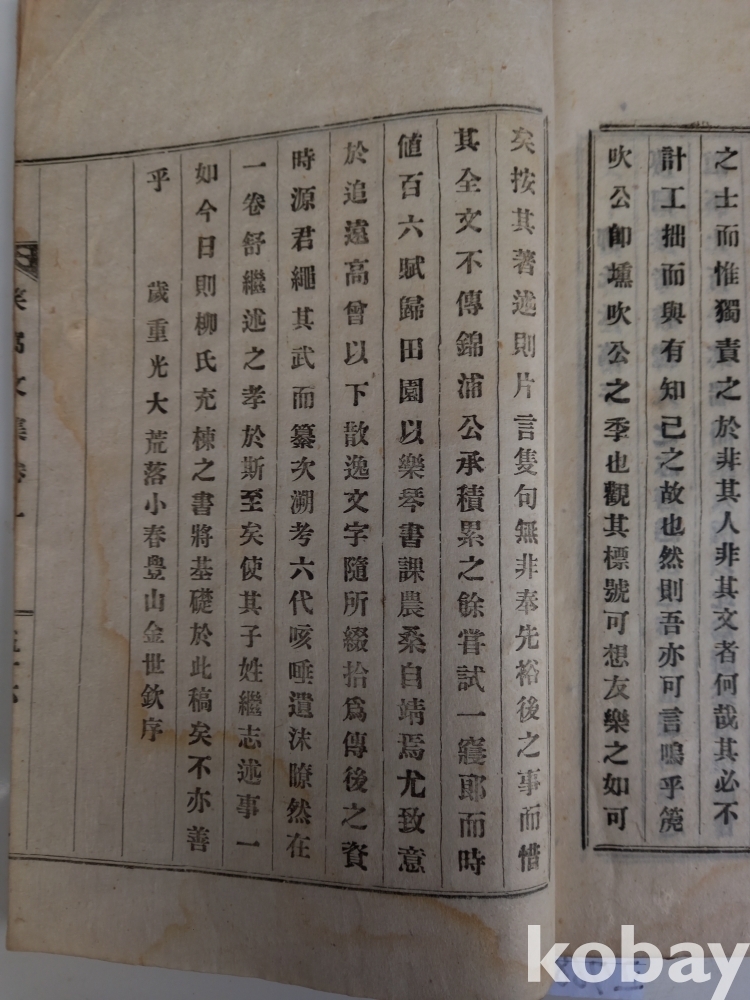 之士而惟獨責之於非其人非其文者何哉其必不
計工拙而與有知己之故也然則吾亦可言嗚乎篪
吹公卽壎吹公之季也觀其標號可想友樂之如可
矣按其著述則片言隻句無非奉先裕後之事而惜
其全文不傳錦浦公承積累之餘嘗試一寢郞而時
値百六賦歸田園以樂琴書課農桑自靖焉尤致意
於追遠高曾以下散逸文字隨所綴拾爲傳後之資
時源君繩其武而纂次溯考六代咳唾遺沫瞭然在
一卷舒繼述之孝於斯至矣使其子姓繼志述事一
如今日則柳氏充棟之書將基礎於此稿矣不亦善
乎 歲重光大荒落小春豊山金世欽序
文集卷
kobay